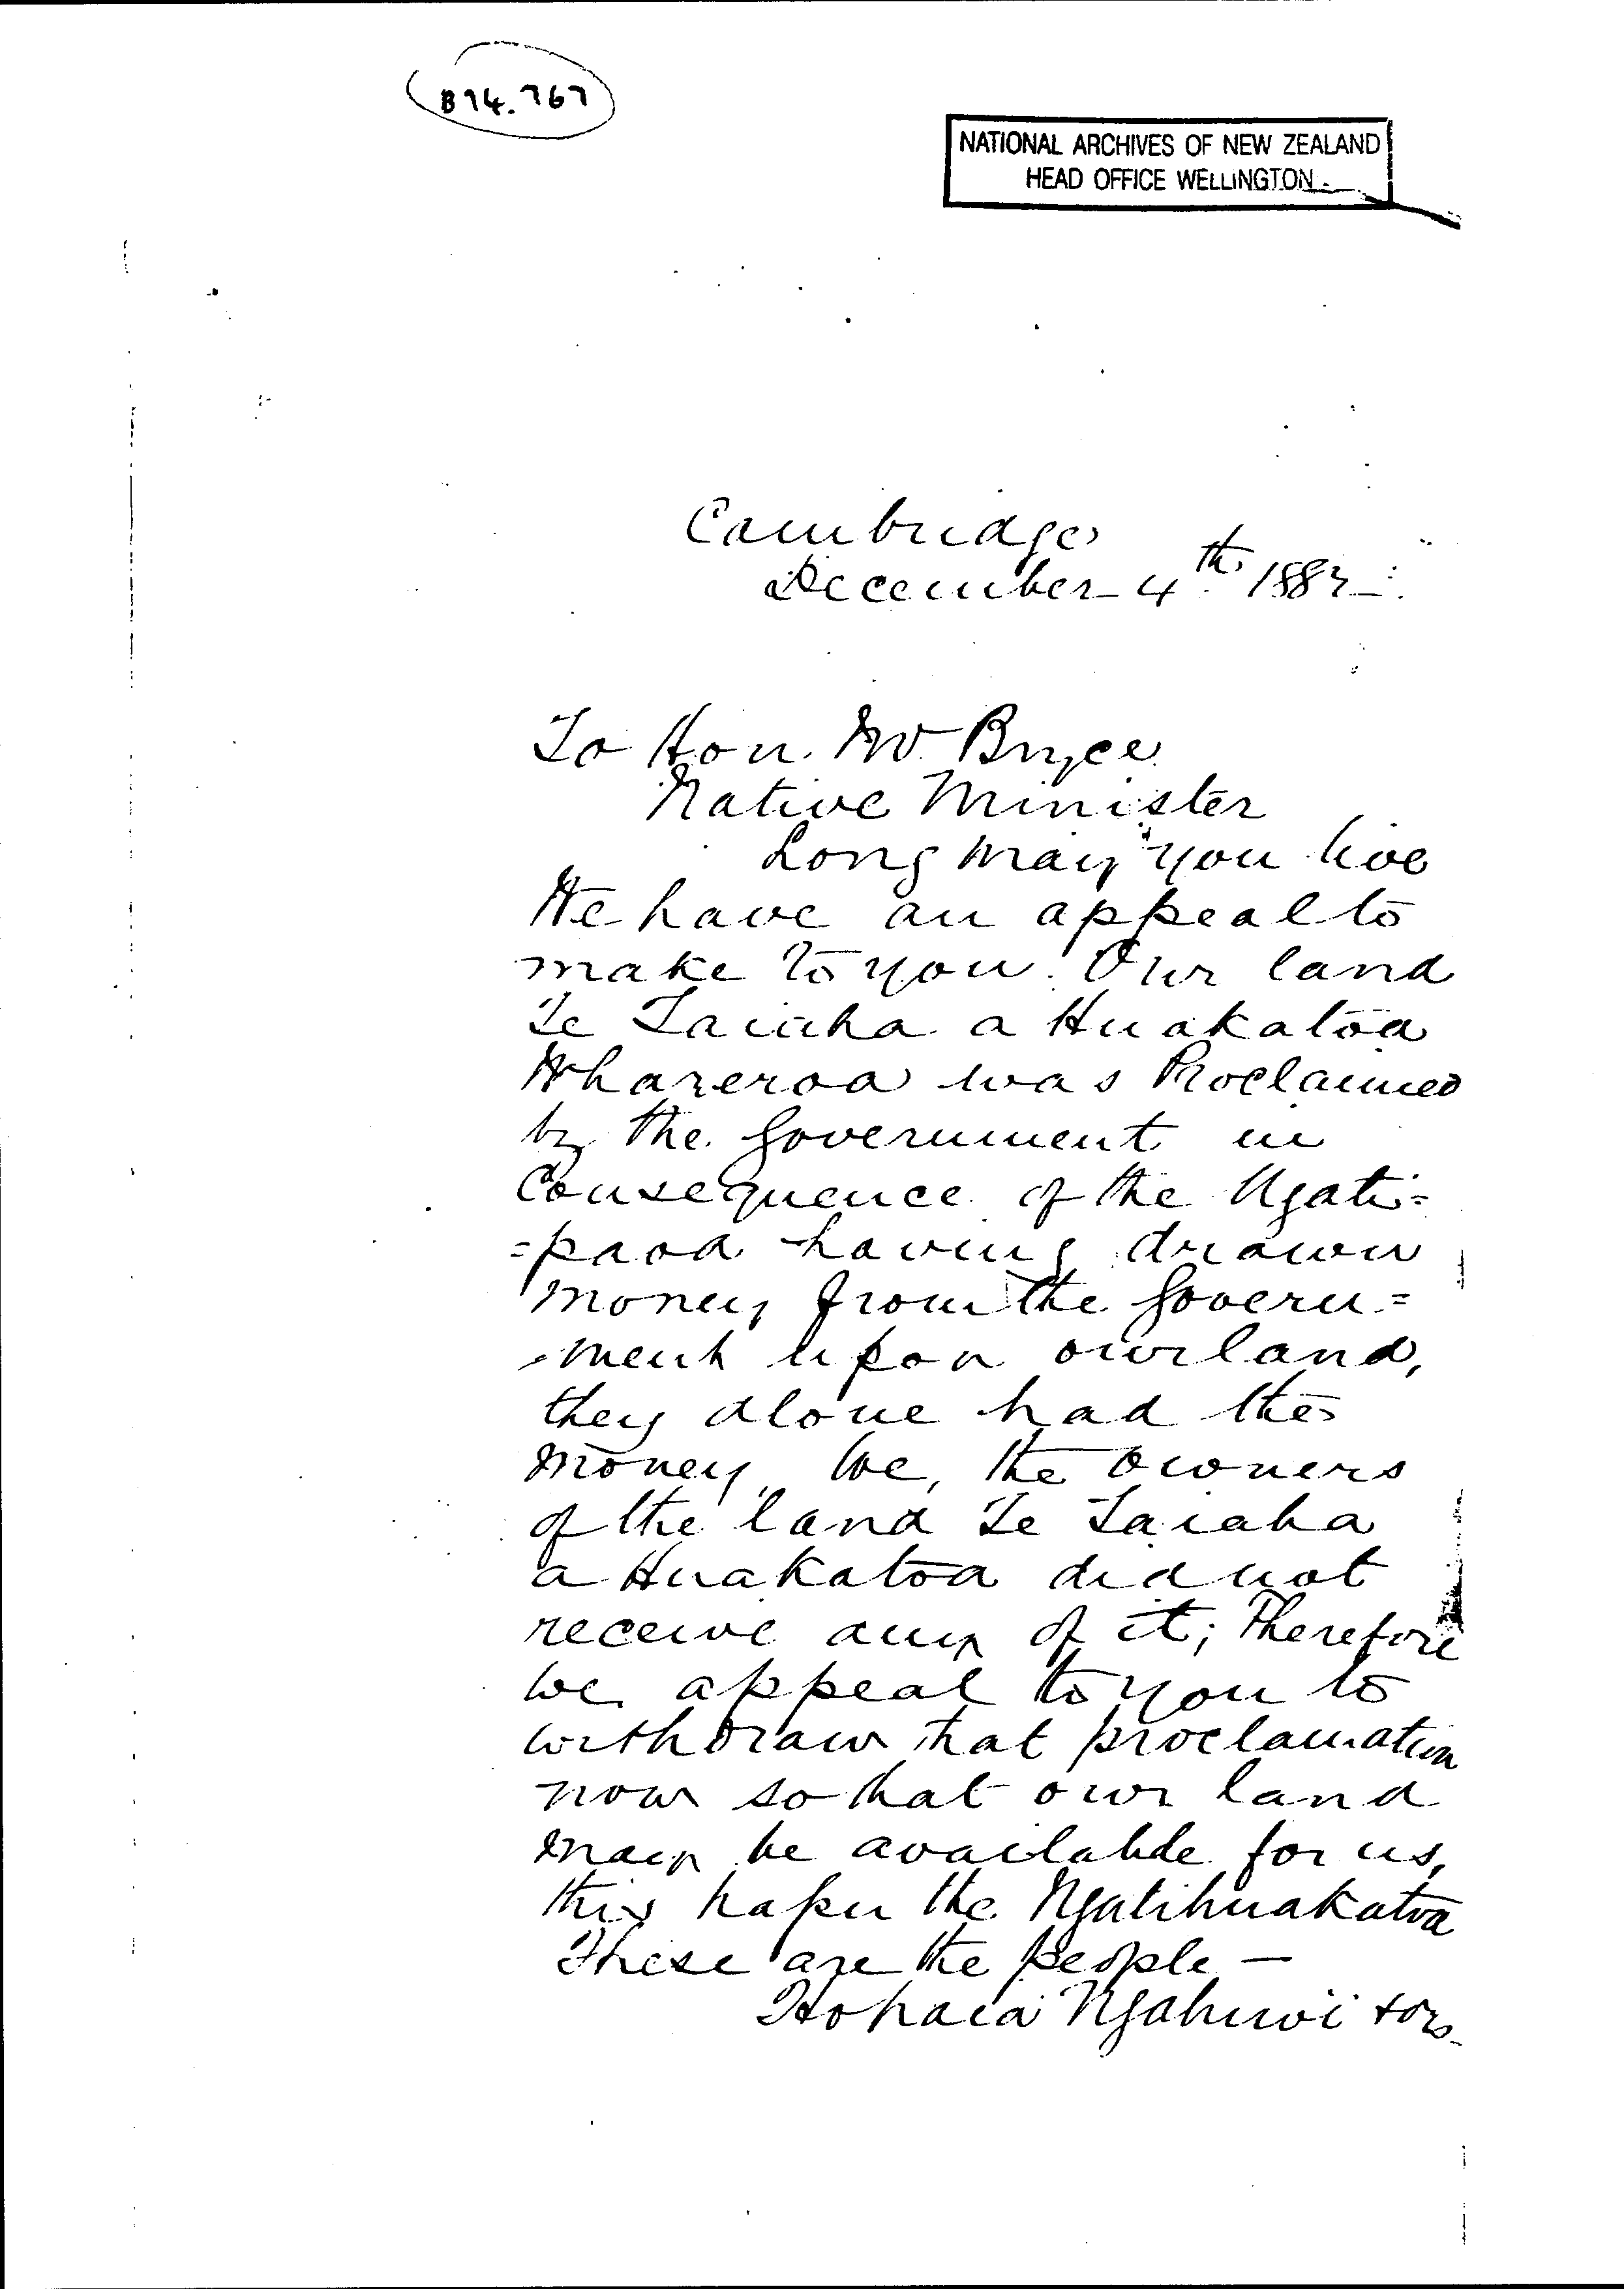 B74.767
NATIONAL ARCHIVES OF NEW ZEALAND
HEAD OFFICE WELLINGTON
Cambridge
December 4th 1883
To Hon. Mr Bryce
Native Minister
Long may you live
We have an appeal to
make to you. Our land
Te Taiaha a Huakatoa
Whareroa was Proclaimed
by the Government in
Consequence of the Ngati=
=paoa having drawn
money from the Govern=
=ment upon our land,
they alone had the
money, We, the owners
of the land Te Taiaha
a Huakatoa did not
receive any of it; Therefore
we appeal to you to
withdraw that proclamation
now so that our land
may be available for us,
this hapu the Ngatihuakatoa
These are the people —
Hohaia Ngahiwi + ors